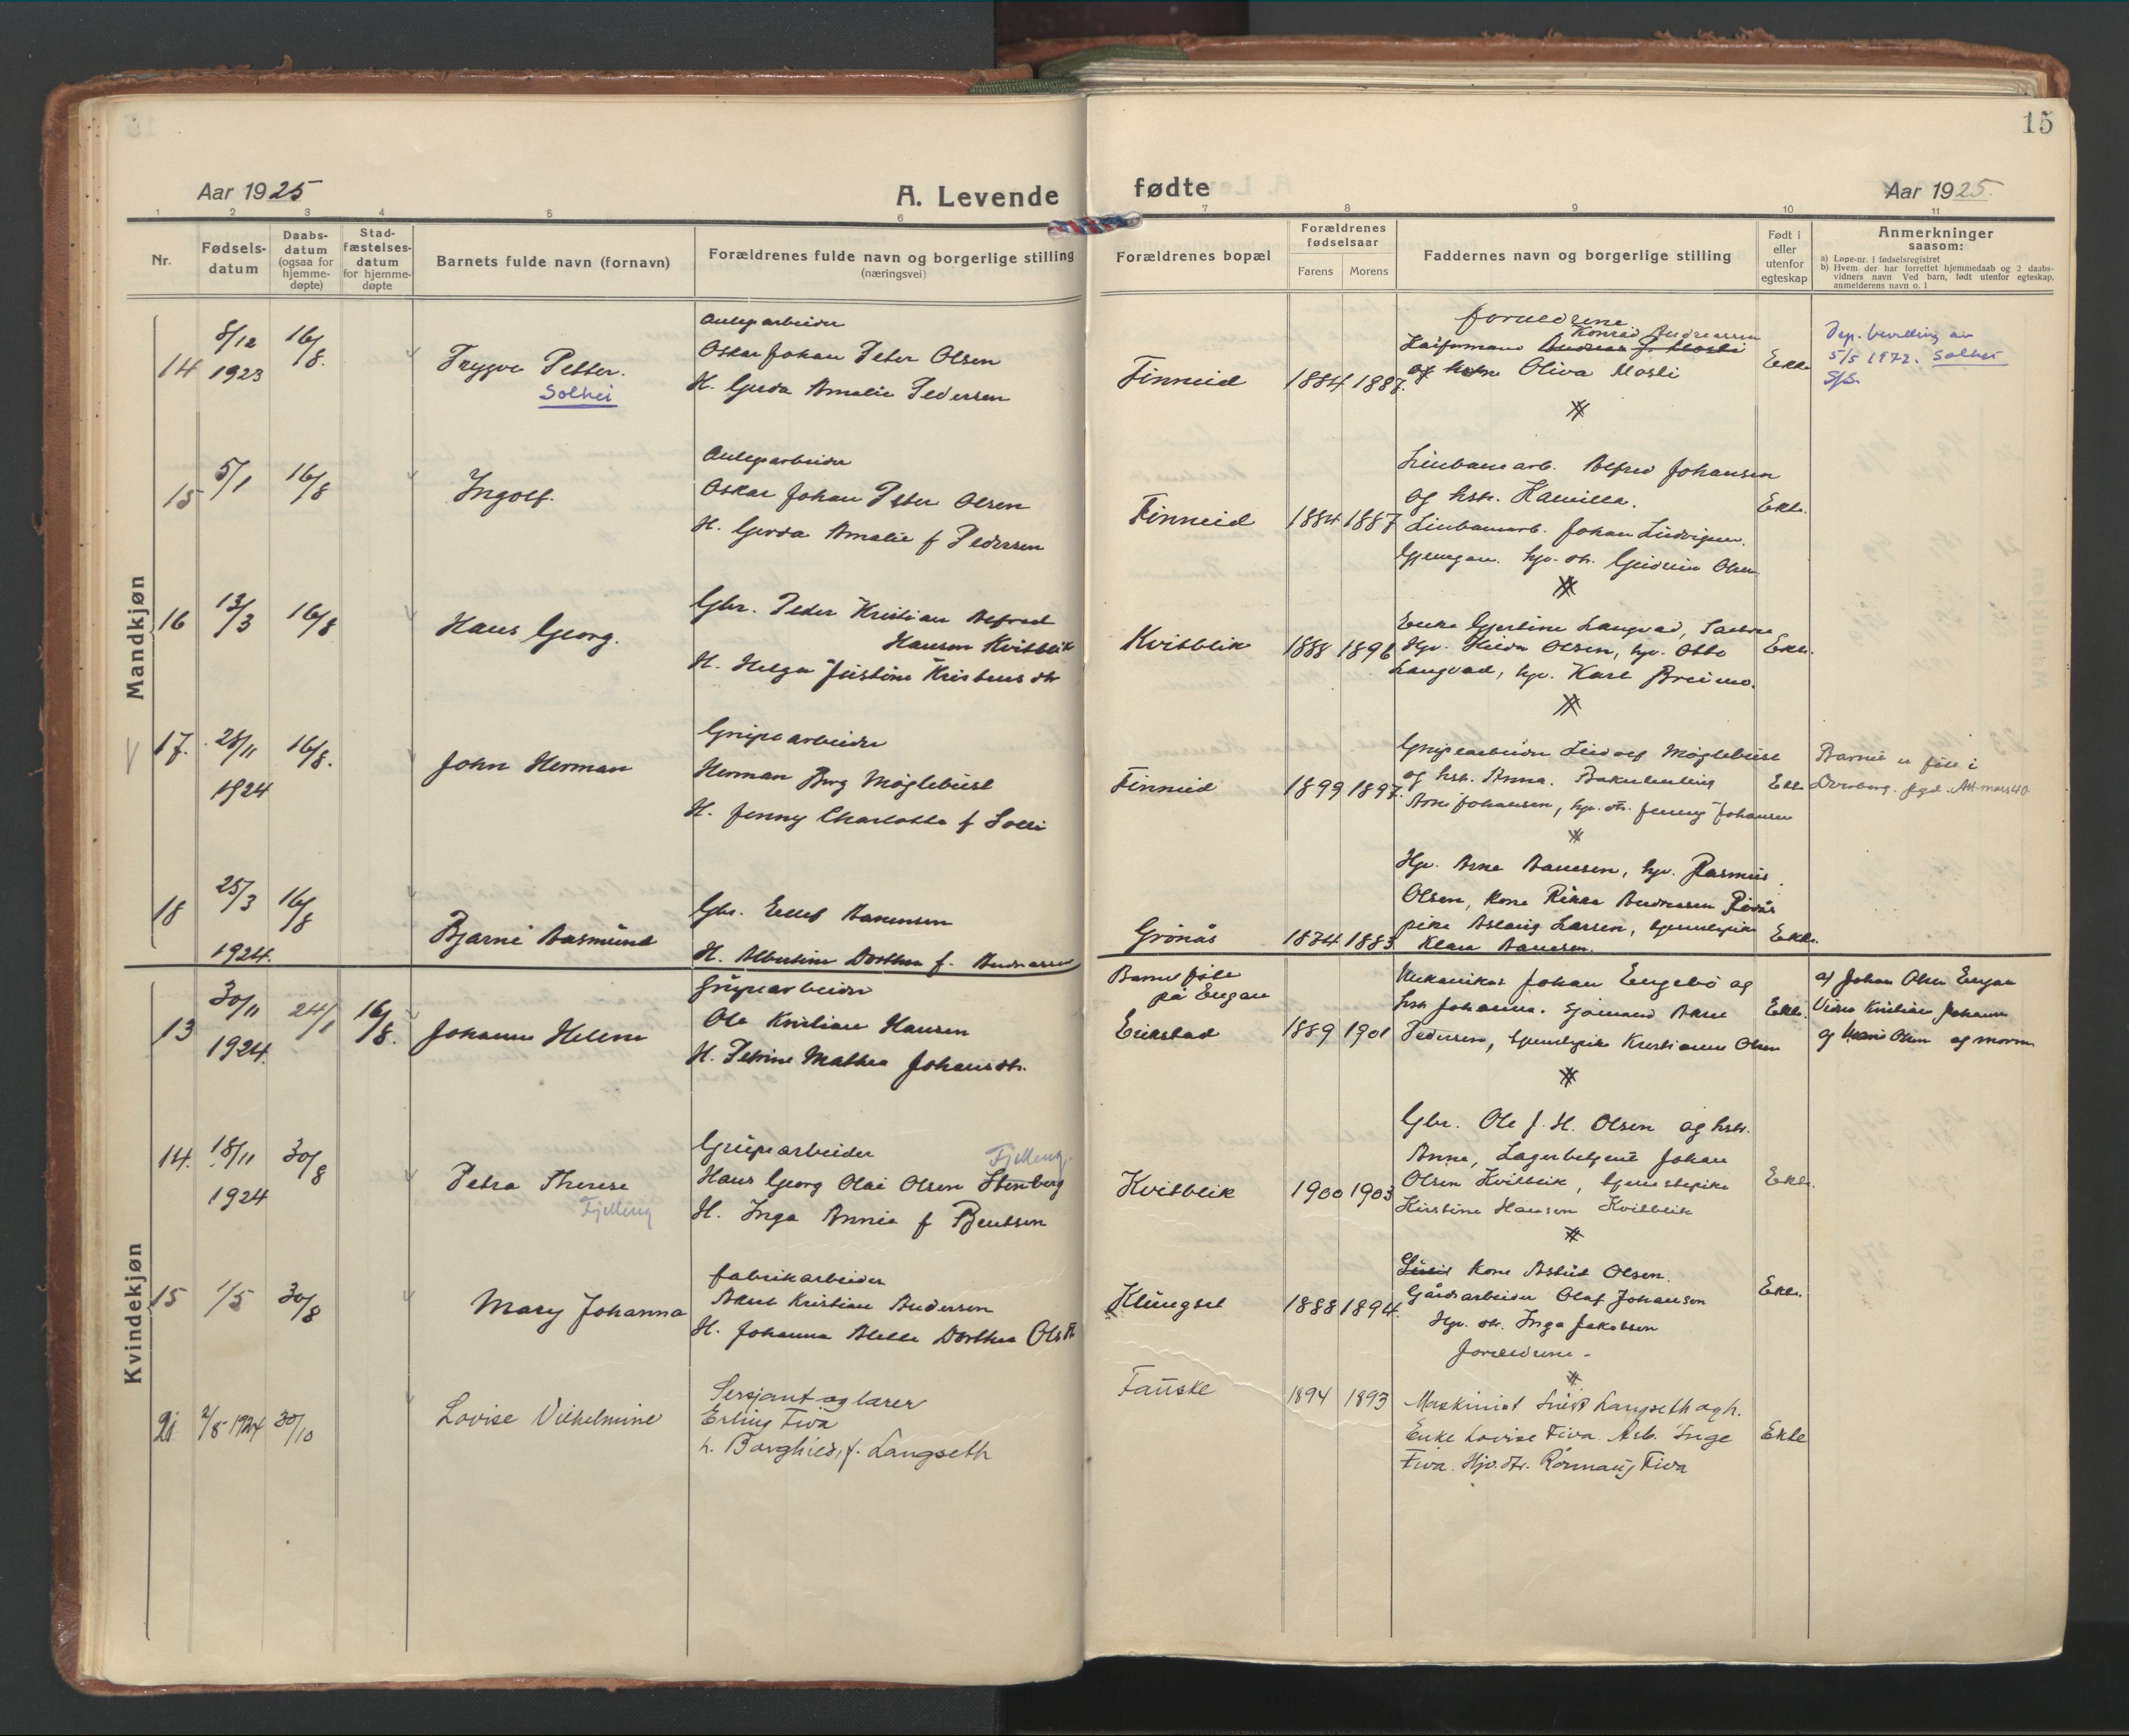 15
Aar 1925
A. Levende
fødte
Aar 1925.
1 2 3 4 5 6 7 8 9 10 11
Nr.
Fødsels-
datum
Daabs-
datum
(ogsaa for
hjemme-
døpte)
Stad-
fæstelses-
datum
for hjemme-
døpte
Barnets fulde navn (fornavn)
Forældrenes fulde navn og borgerlige stilling
(næringsvei)
Forældrenes bopæl
Forældrenes
fødselsaar
Farens
Morens
Faddernes navn og borgerlige stilling
Født i
eller
utenfor
egteskap
Anmerkninger
saasom:
a) Løpe-nr. i fødselsregistret
b) Hvem der har forrettet hjemmedaab og 2 daabs-
vidners navn. Ved barn, født utenfor egteskap,
anmelderens navn o. l
Mandkjøn
14
8/12
1923
16/8.
Trygve Petter.
Solhei
Anlegsarbeider
Oskar Johan Peter Olsen
H. Gerda Amalie Pedersen
Finneid
1884 1887.
foreldrene
Konrad Andreassen
og hstr Oliva Mosti
Ekte
Dep. bevilling av
5/5 1972. Solhei
15
5/1
16/8
Ingolf.
Anlegsarbeider
Oskar Johan Peter Olsen
H. Gerda Amalie f Pedersen
Finneid
1884 1887
Linbanearb. Alfred Johansen
og hstr. Kamilla.
Linbanearb. Johan Ludvigsen.
hjv. dtr. Gudrun Olsen
Ekte.
16
13/3
16/8
Hans Georg.
Gbr. Peder Kristian Alfred
Hansen Kvitblik
H. Helga Justine Kristensdtr
Kvitblik
1888 1896
Enke Gjertine Langvad,
Hjv. Hilda Olsen, hjv. Otto
Langvad, hjv. Karl Breimo.
Ekte.
17.
28/11
1924
16/8.
John Herman
Grubearbeider
Herman Berg Møglebust
H. Jenny Charlotte f Solli
Finneid
1899 1897.
Grubearbeider Ludolf Møglebust
og hstr. Anna.
Arne Johansen, hjv. dtr. Jenny Johansen
Ekte
Barnet er født i
18
25/3
1924.
16/8
Bjarne Aasmund
Gbr. Ellef Aanensen
H. Albertine Dorthea f. Andreassen
Grønås
1874 1883
Hjv. Arne Aanesen, hjv. Rasmus
Olsen, kone Rikka Andreassen Røvås
pike Aslaug Larsen, tjenestepike
Klara Aanesen.
Ekte.
Kvindekjøn
13
30/11
1924.
24/1
16/8.
Johanne Helene
Grubearbeider
Ole Kristian Hansen
H. Petrine Mathea Johansdtr.
Barnet født
på Engan
Erikstad
1889 1901
Mekaniker Johan Engebø og
hstr Johanna. Sjømand Aane
Pedersen, tjenestepike Kristianne Olsen
Ekte.
af Johan Olsen Engan
og Marie Olsen og moren
14.
18/11
1924
30/8
Petra Therese
Fjelleng
Grubearbeider
Fjelleng.
Hans Georg Olai Olsen Stenberg
H. Inga Annie f Bentsen
Kvitblik
1900 1903
Gbr. Ole J. H. Olsen og hstr.
Anna, Lagerbetjent Johan
Olsen Kvitblik, tjenestepike
Kirstine Hansen Kvitblik
Ekte.
15
1/5
30/8
Mary Johanna
fabrikarbeider
Aksel Kristian Andersen
H. Johanna Dorthea
Klungset
1888 1894.
Kone Astrid Olsen.
Gårdsarbeider Olaf Johansen
Hjv. dtr. Inga Jakobsen
foreldrene -
Ekte.
21
2/8-1924
30/10
Lovise Vilhelmine
Sersjant og lærer
Erling Fiva
h. Borghild, f. Langseth
Fauske
1894 1893
Maskinist Langseth og h.
Enke Lovise Fiva. Arb. Inge
Fiva. Hjv. dtr. Rønnaug Fiva
Ekte